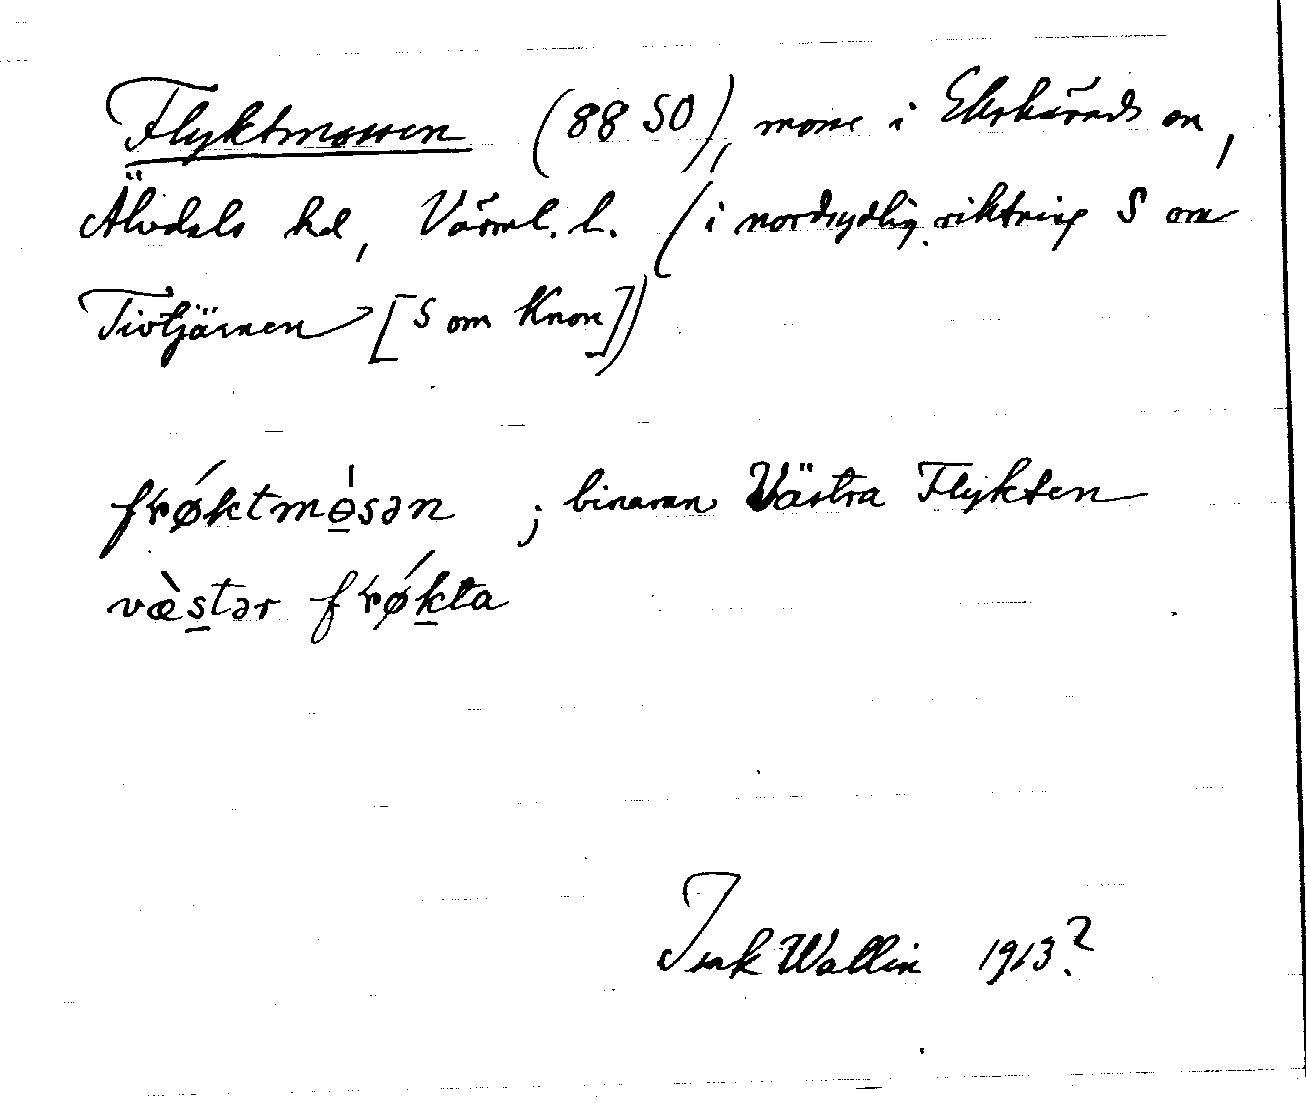 Flyktmossen (88 SO), mosse i Ekshärads sn,
Älvdals hd, Värml. l. (i nordsydlig riktning S om
Tivtjärnen [S om Knon])
frøktmòsən ; binamn Västra Flykten
væ̀stər frøkta
Isak Wallin 1913?